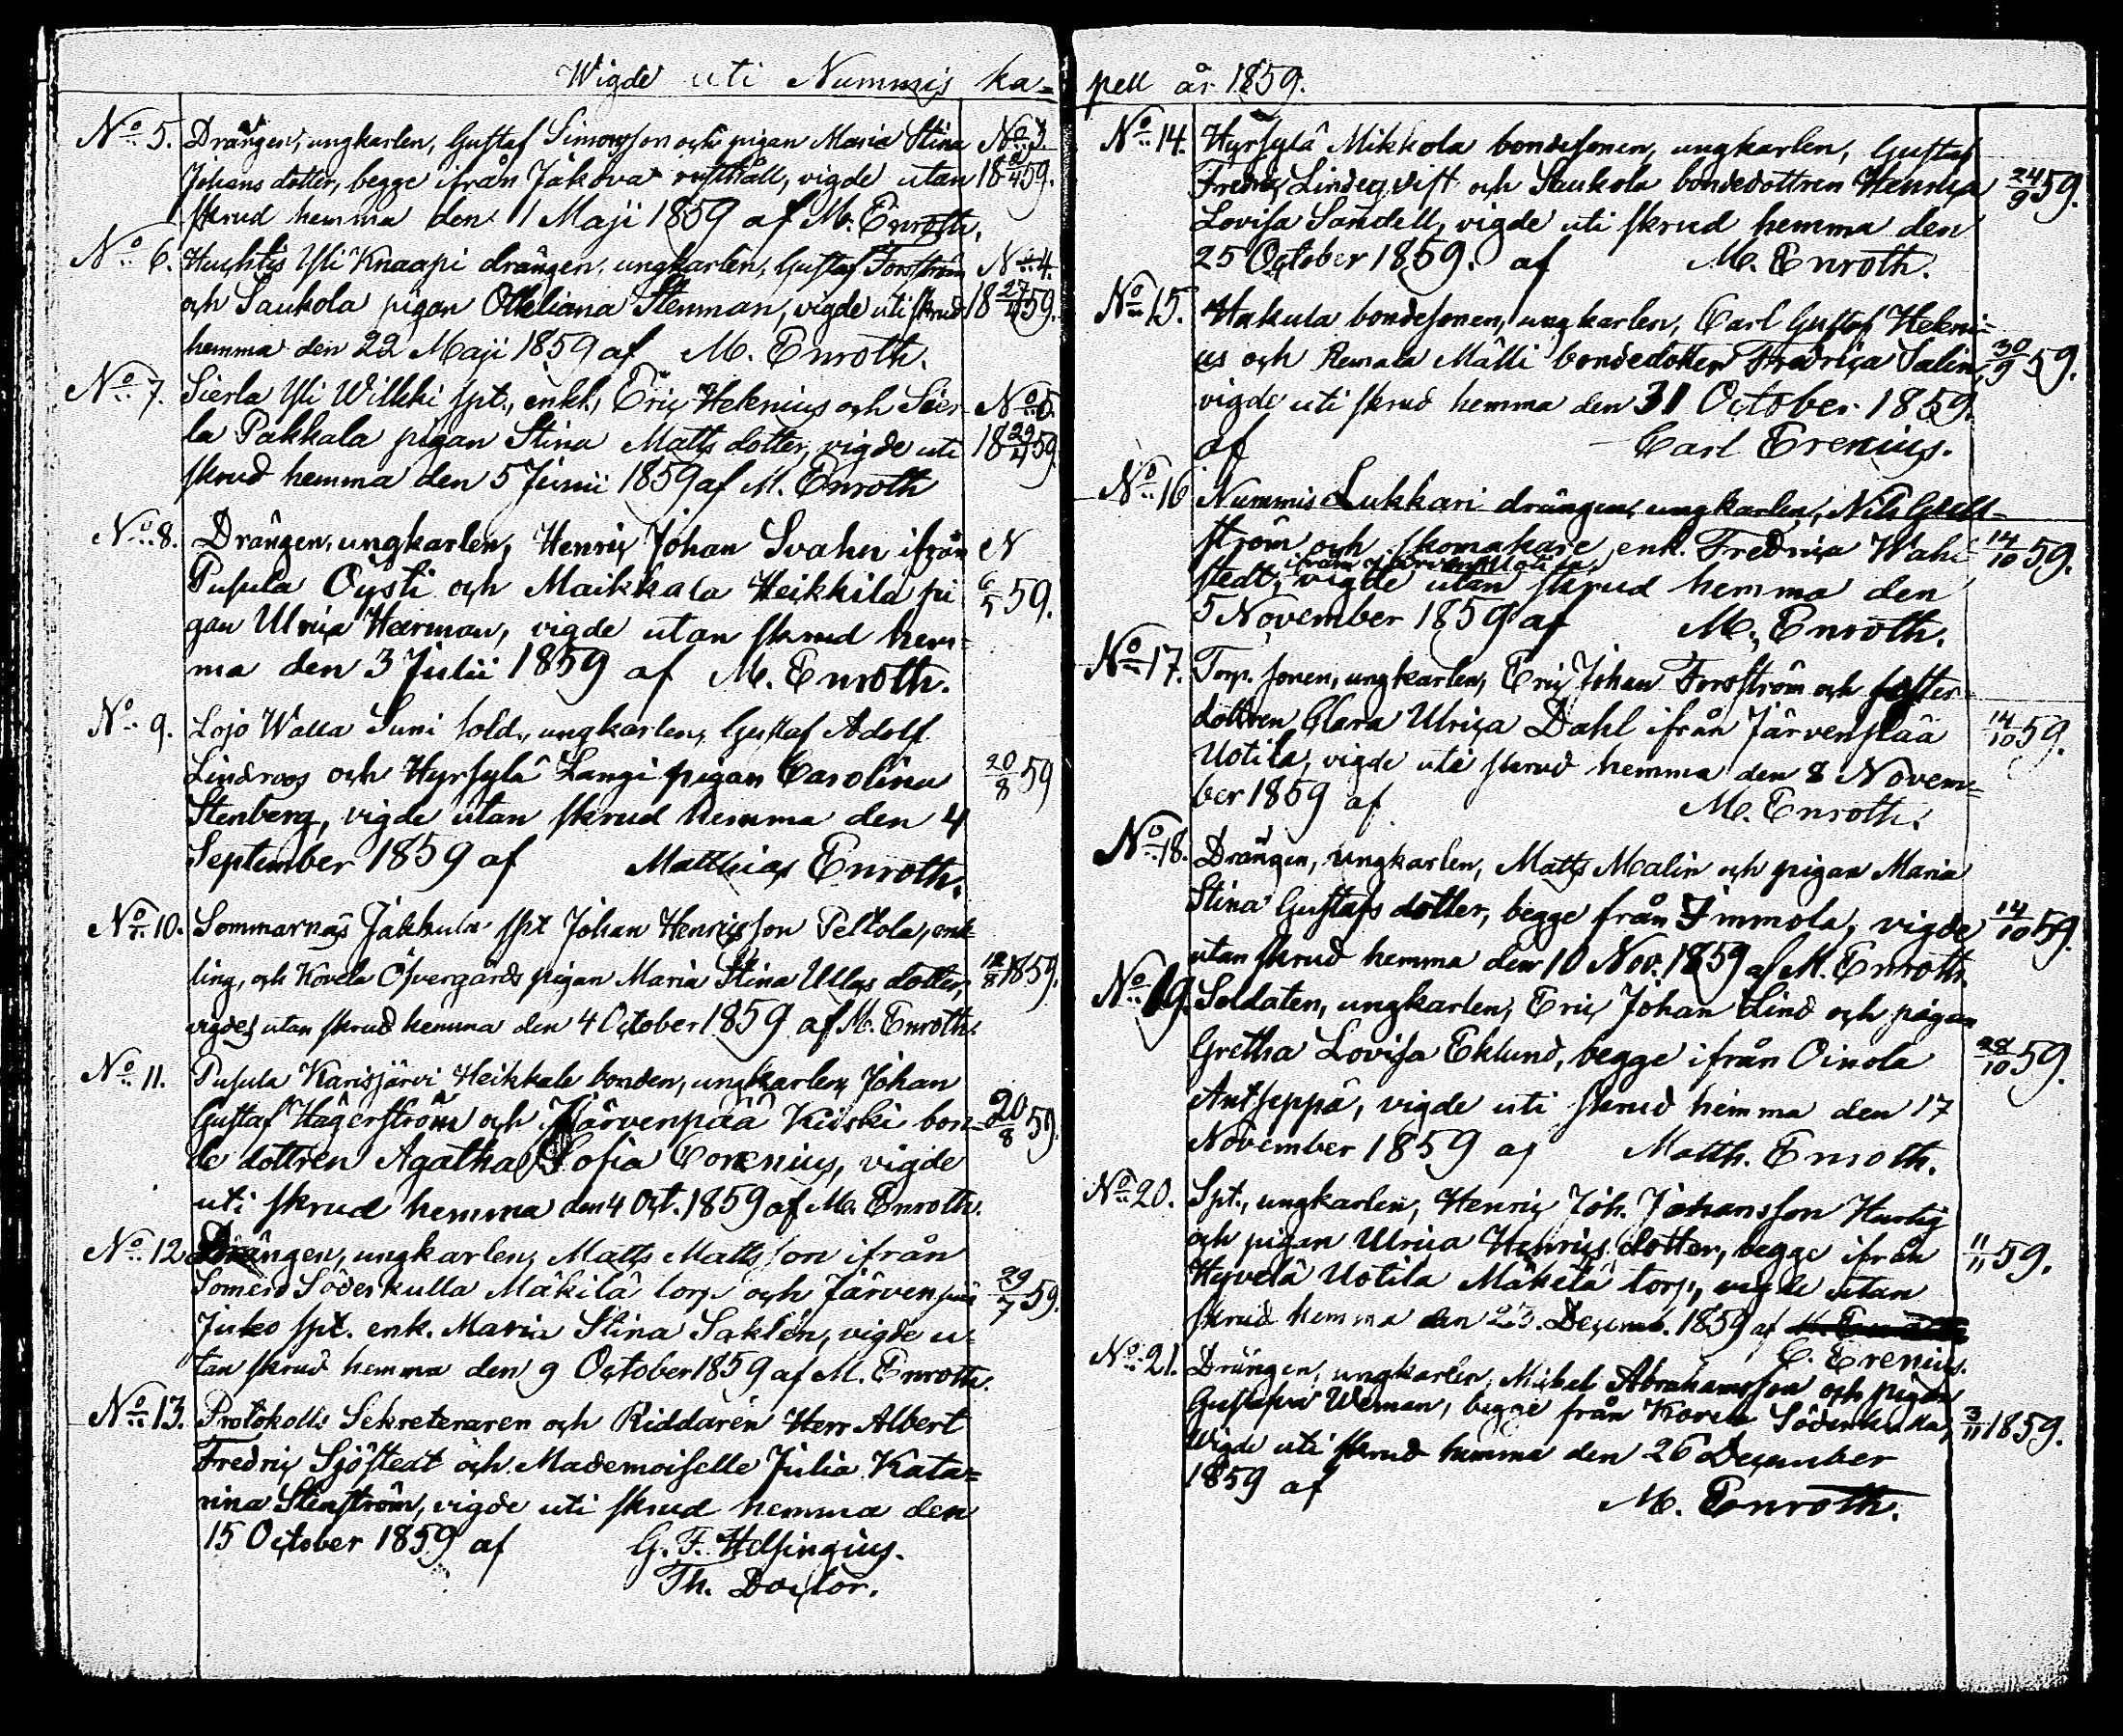 Wigde uti Nummis ka-
pell år 1859.
No 5. Drängen, ungkarlen, Gustaf Simonsson och pigan Maria Stina No 3
Johans dotter, begge ifrån Jakova rusthåll, vigde utan 18 /4 59.
skrud hemma den 1 Maji 1859 af M. Enroth.
No 6. Huhtis Yli Knaapi drängen, ungkarlen, Gustaf Forsström No 4.
och Saukola pigan Otteliana Stenman, vigde uti skrud 18 27/4 59.
hemma den 22 Maji 1859 af M. Enroth.
No 7. Sierla Yli Wilkki spt., enkl., Eric Helenius och Sier- No 5.
la Pakkala pigan Stina Matts dotter, vigde uti 18 29/4 59
skrud hemma den 5 Junii 1859 af M. Enroth
No 8. Drängen, ungkarlen, Henric Johan Svahn ifrån N
Pusula Öysti och Maikkala Heikkilä pi 6/5 59.
gan Ulrica Heerman, vigde utan skrud hem-
ma den 3 Julii 1859 af M. Enroth.
No 9. Lojo Walla Suni sold., ungkarlen, Gustaf Adolf
Lindroos och Hyrsylä Langi pigan Carolina 20/8 59
Stenberg, vigde utan skrud hemma den 4
September 1859 af Matthias Enroth.
No 10. Sommarnäs Jakkula spt Johan Henricsson Peltola, enk-
ling, och Kovela Öfvergårds pigan Maria Stina Ullas dotter, 12/8 1859.
vigde utan skrud hemma den 4 October 1859 af M. Enroth.
No 11. Pusula Karisjärvi Heikkala bonden, ungkarlen, Johan
Gustaf Hägerström och Järvenpää Kiiski bon- 20/8 59.
de dottren Agatha Sofia Corenius, vigde
uti skrud hemma den 4 Oct. 1859 af M. Enroth.
No 12 Drängen, ungkarlen, Matts Mattsson ifrån
Somero Söderkulla Mäkilä torp och Järvenpää 29/7 59.
Juko spt. enk. Maria Stina Saklén, vigde u-
tan skrud hemma den 9 October 1859 af M. Enroth.
No 13. Protokolls Sekreteraren och Riddaren Herr Albert
Fredric Sjöstedt och Mademoiselle Julia Kata-
rina Stenström, vigde uti skrud hemma den
15 October 1859 af G. F. Helsingius.
Th. Doctor.
No 14. Hyrsylä Mikkola bondesonen, ungkarlen, Gustaf
Fredric Lindeqvist och Saukola bondedottren Henrica 24/9 59.
Lovisa Sandell, vigde uti skrud hemma den
25 October 1859. af M. Enroth.
No 15. Hakula bondesonen, ungkarlen, Carl Gustaf Heleni-
us och Remala Mälli bondedotter Fredrica Salin, 30/9 59.
vigde uti skrud hemma den 31 October 1859.
af Carl Erenius.
No 16 Nummis Lukkari drängen, ungkarlen, Nils
ström och skomakare enk. Fredrica Wahl 14/10 59.
ifrån Järvenpää Uotila
stedt, vigde utan skrud hemma den
5 November 1859 af M. Enroth.
No 17. Torp. sonen, ungkarlen, Eric Johan Forsström och foster-
dottren Clara Ulrica Dahl ifrån Järvenpää 14/10 59.
Uotila, vigde uti skrud hemma den 8 Novem-
ber 1859 af M. Enroth.
No 18. Drängen, ungkarlen, Matts Malin och pigan Maria
Stina Gustafs dotter, begge från Immola, vigde 14/10 59.
utan skrud hemma den 10 Nov. 1859 af M. Enroth.
No 19. Soldaten, ungkarlen, Eric Johan Lind och pigan
Gretha Lovisa Eklund, begge ifrån Oinola 28/10 59.
Antseppä, vigde uti skrud hemma den 17
November 1859 af Matth. Enroth.
No 20. Spt., ungkarlen, Henric Joh. Johansson Hurtig
och pigan Ulrica Henrics dotter, begge ifrån 11/11 59.
Hyvelä Uotila Mäkelä torp, vigde utan
skrud hemma den 23. Decemb. 1859 af M. Enroth
C. Erenius.
No 21. Drängen, ungkarlen, Mickel Abrahamsson och pigan
Gustafva Weman, begge från Kovela Söderkulla, 3/11 1859.
Wigde uti skrud hemma den 26 December
1859 af
M. Enroth.